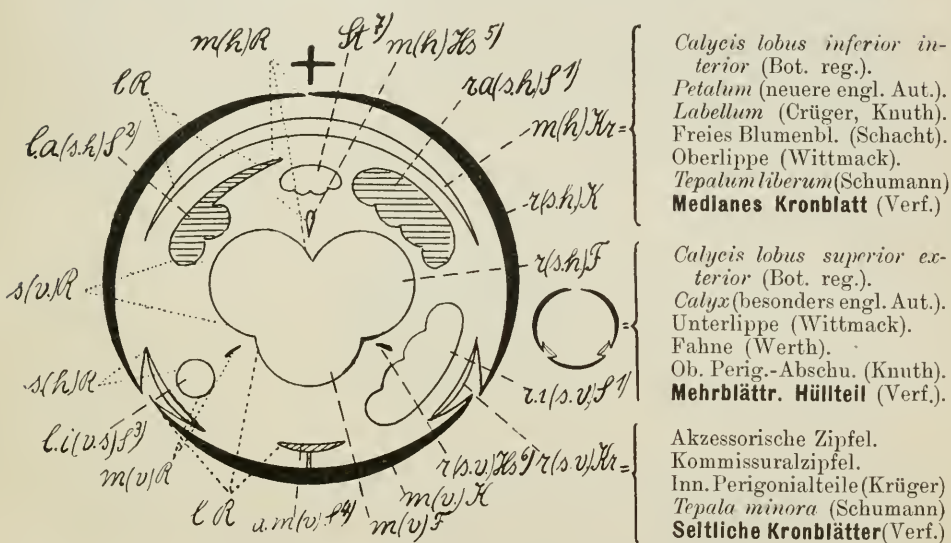 m(h)R
St 7)
m(h)Hs 5)
lR
ra(s.h)S 1)
l.a(s.h)S 2)
m(h)Kr=
r(s.h)K
r(s.h)F
s(v.)R
s(h)R
r.i(s.v)S 1)
l.i(v.s)S 3)
m(v)R
r(s.v)Hs 6)
r(s.v)Kr=
m(v.)K
l R
a.m(v) S 4)
m(v)F
Calycis lobus inferior in-
terior (Bot. reg.).
Petalum (neuere engl. Aut.).
Labellum (Crüger, Knuth).
Freies Blumenbl. (Schacht).
Oberlippe (Wittmack).
Tepalum liberum (Schumann)
Medianes Kronblatt (Verf.)
Calycis lobus superior ex-
terior (Bot. reg.).
Calyx (besonders engl. Aut.).
Unterlippe (Wittmack).
Fahne (Werth).
Ob. Perig.-Abschu. (Knuth).
Mehrblättr. Hüllteil (Verf.).
Akzessorische Zipfel.
Kommissuralzipfel.
Inn. Perigonialteile (Krüger)
Tepala minora (Schumann)
Seitliche Kronblätter (Verf.)